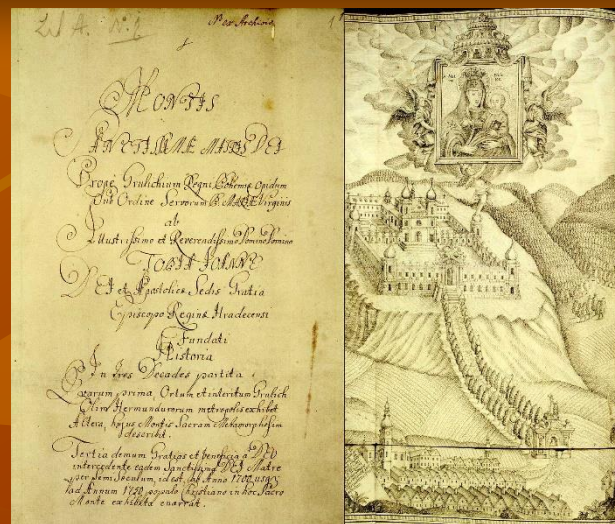 Lit A. No. 1
Nro ex Archivio
MONTIS
SANCTISSIMÆ MATRIS DEI
Prope Grulichium Regni Bohemiæ Opidum
Sub Ordine Servorum B. MARIÆ Virginis
ab
Illustrissimo et Reverendissimo Domino Domino
TOBIA JOANNE
DEI et Apostolicæ Sedis Gratia
Episcopo Reginæ Hradecensi
Fundati
Historia
In Tres Decades partita
Quarum prima, Ortum et interitum Grulich
Olim Hermundurorum metropolis exhibet
Altera, hujus Montis Sacram Metamorphosim
describit.
Tertia demum Gratias et beneficia a DEO
intercedente eadem Sanctissima DEI Matre
per Semi Sæculum, id est, ab Anno 1700 usque
ad Annum 1750 populo Christiano in hoc Sacro
Monte exhibita enarrat.